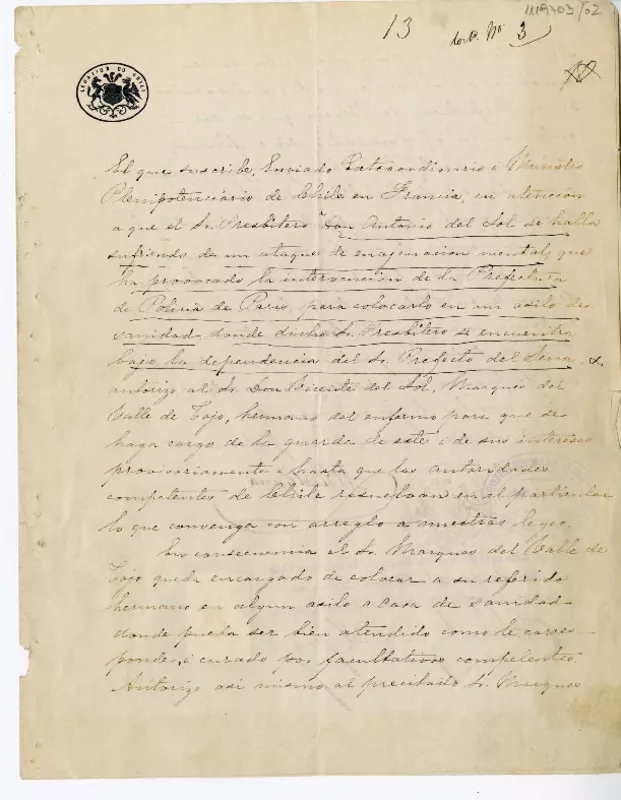 1119703/02
13
Nº 3
LEGACION DE CHILE
El que suscribe, Enviado Extraordinario i Ministro
Plenipotenciario de Chile en Francia, en atencion
a que el Sr. Presbítero Don Antonio del Sol se halla
sufriendo de un ataque de enajenacion mental, que
ha provocado la intervencion de la Prefectura
de Policia de Paris para colocarlo en un asilo de
sanidad donde dicho Sr. Presbítero se encuentra
bajo la dependencia del Sr. Prefecto del Sena,
autorizo al Sr. Don Vicente del Sol, Marques del
Valle de Tojo, hermano del enfermo para que se
haga cargo de la guarda de este i de sus intereses
provisoriamente i hasta que las autoridades
competentes de Chile resuelvan en el particular
lo que convenga con arreglo a nuestras leyes.
En consecuencia el Sr. Marques del Valle de
Tojo queda encargado de colocar a su referido
hermano en algun asilo o casa de sanidad
donde pueda ser bien atendido como le corres-
ponde, i curado por facultativos competentes.
Autorizo asi mismo al precitado Sr. Marques